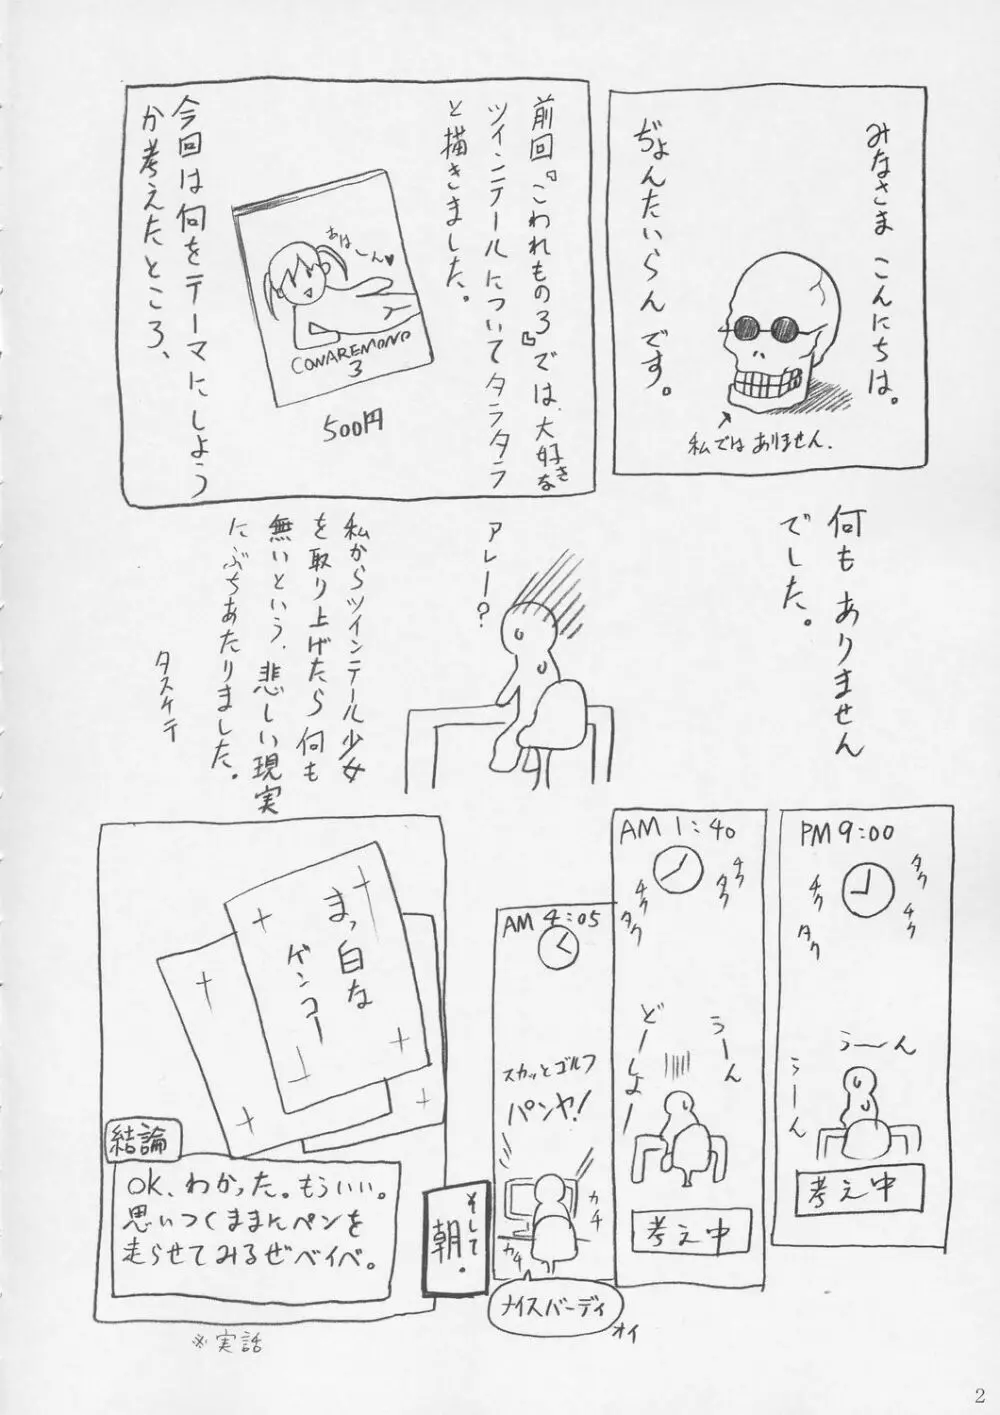 みなさま こんにちは。
ぢょんたいらんです。
私ではありません.
前回『こわれもの3』では、大好きな
ツインテールについてタラタラ
と描きました。
あはーん♥
CONAREMONO
3
500円
今回は何をテーマにしよう
か考えたところ、
何もありません
でした。
アレー?
私からツインテール少女
を取り上げたら何も
無いという、悲しい現実
にぶちあたりました。
タスケテ
PM 9:00
チク
タク
チク
タク
うーん
うーん
考え中
AM 1:40
チク
タク
チク
タク
うーん
どーしよー
考え中
AM 4:05
スカッとゴルフ
パンヤ!
カチ
カチ
ナイスバーディ
オイ
そして
朝.
まっ白な
ゲンコー
結論
OK、わかった。もういい。
思いつくままんペンを
走らせてみるぜベイベ。
※実話
2